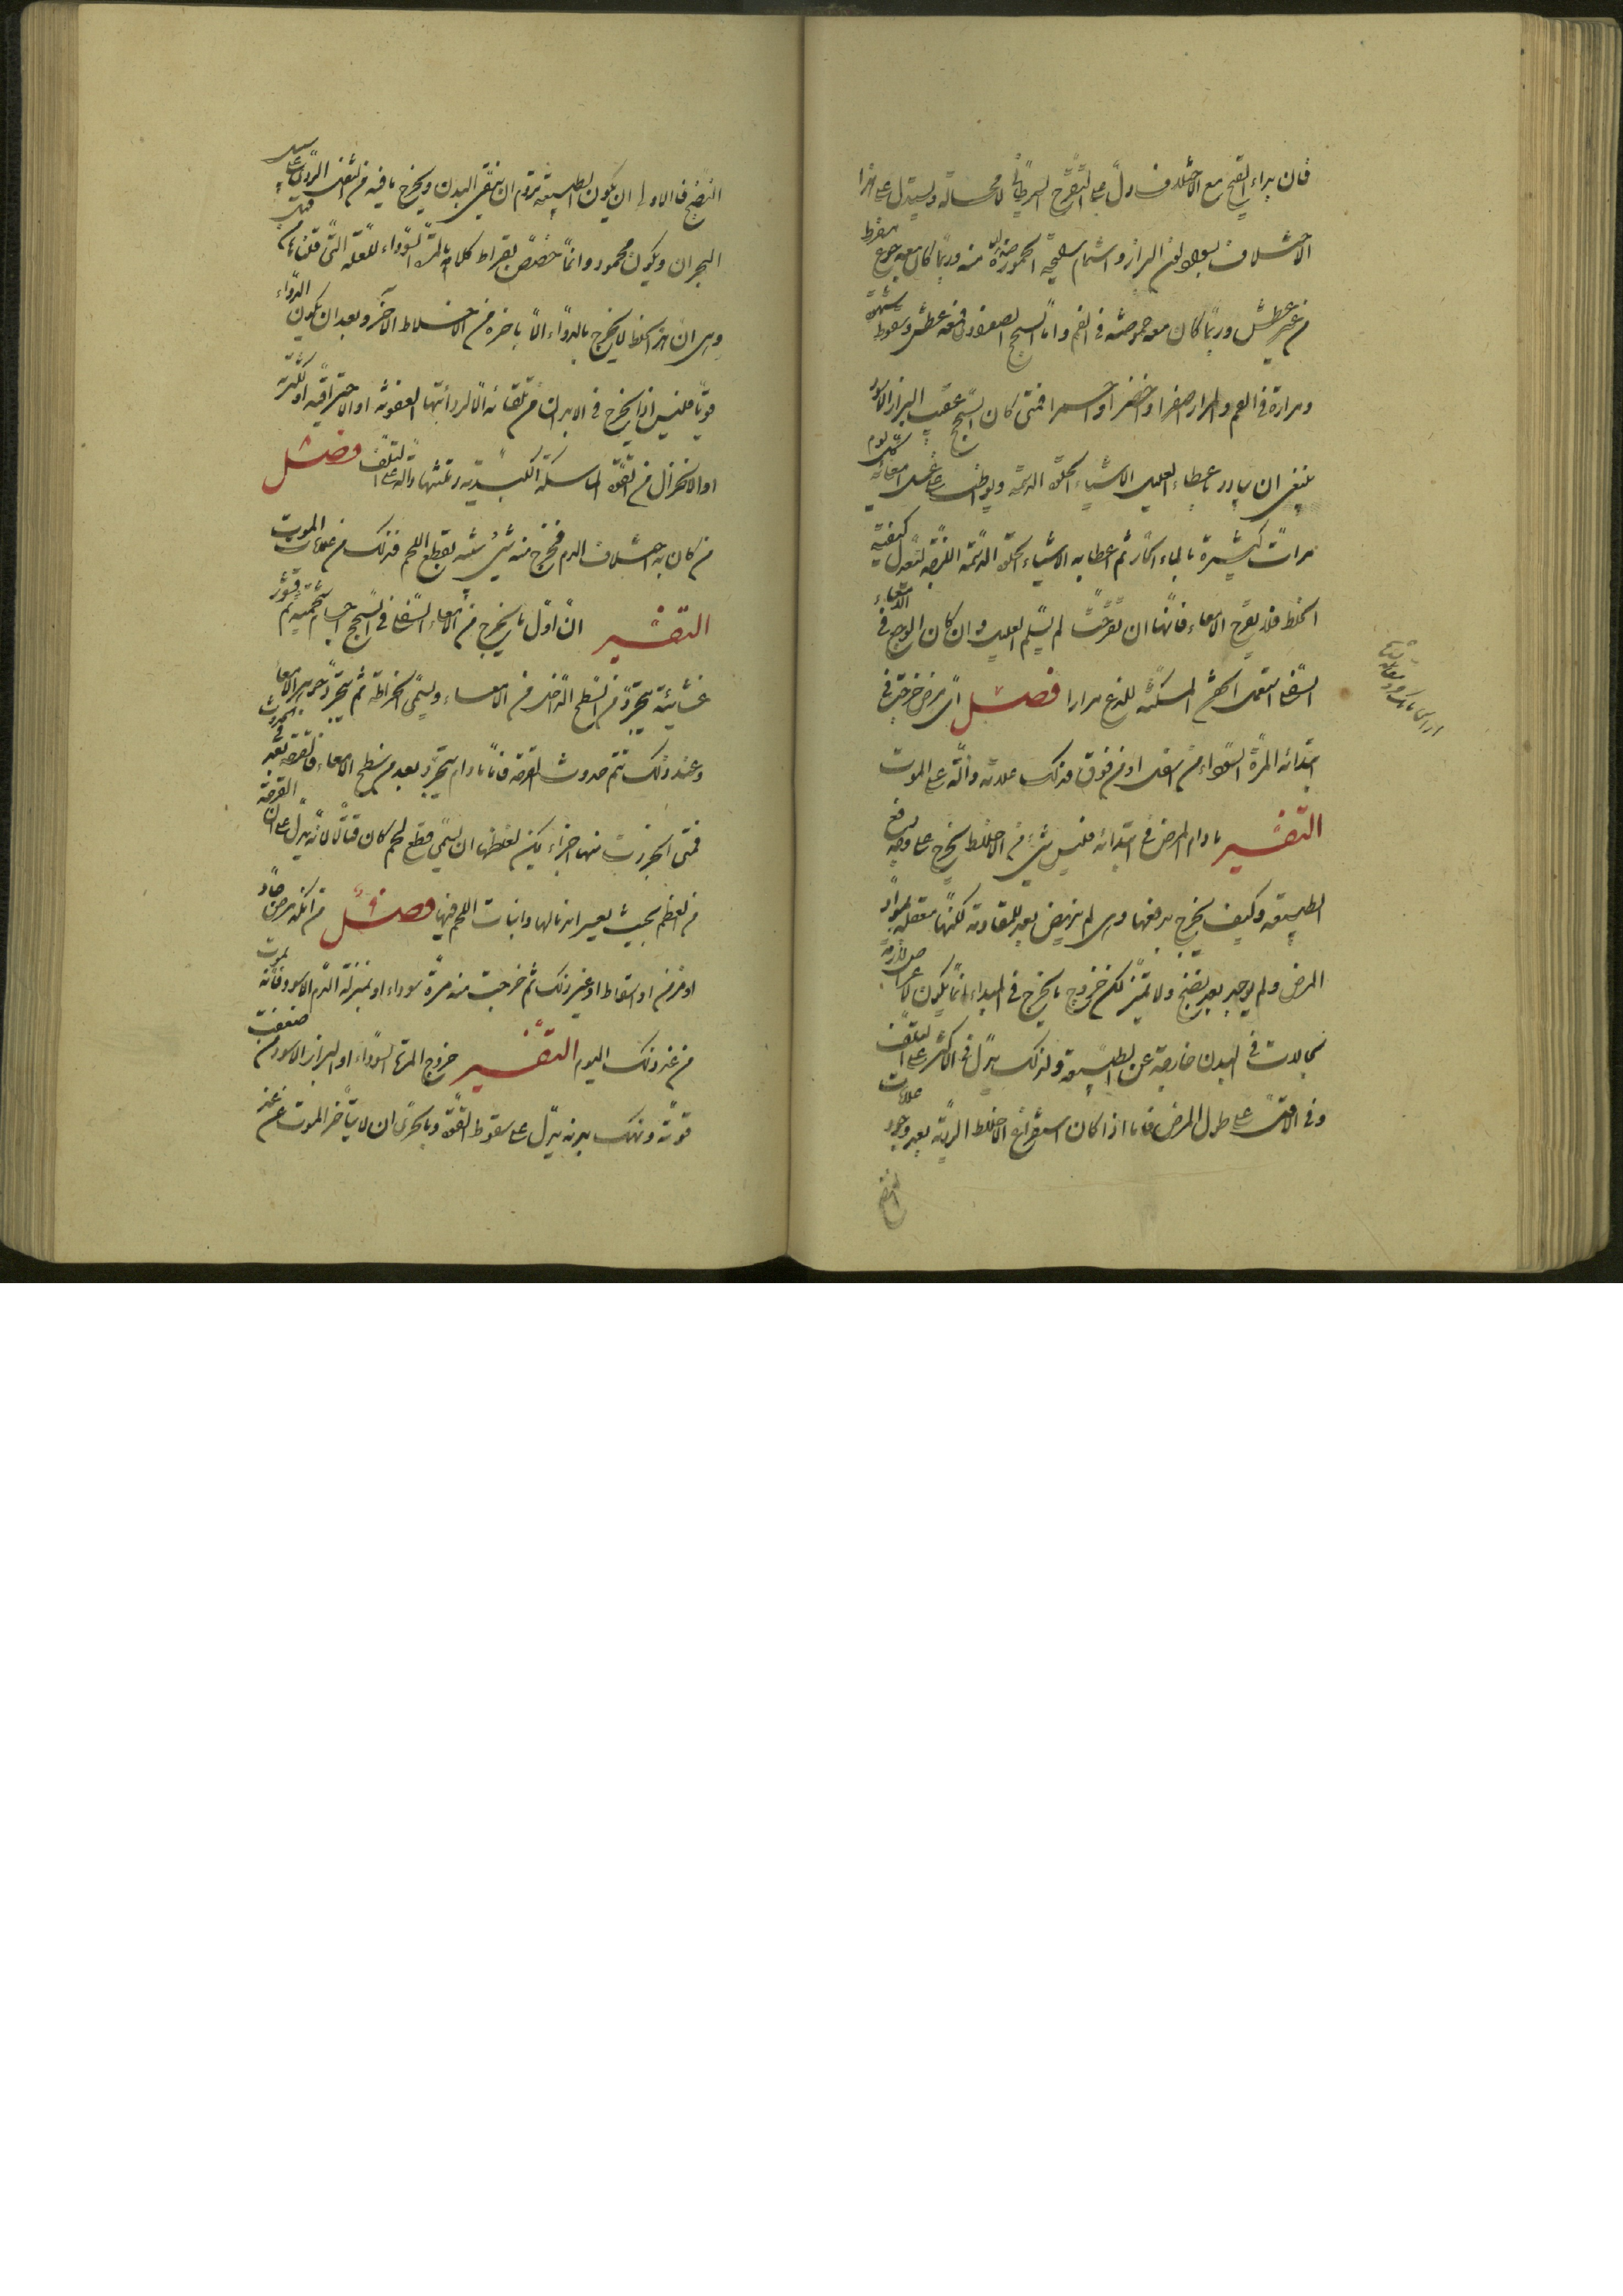 فان براء القيح مع الاختلاف دل على التقرح السرطاني لا محالة ويستدل على هذا
الاختلاف بسواد لون البراز واشتمام رائحة الحموضة منه وربما كان معه جوع مفرط
من غير عطش وربما كان معه حموضة في الفم واما السحج الصفراوي فمعه عطش وسقوط شهوة
ومرارة في الفم والبراز اصفر او اخضر او احمر فمتى كان السحج عقيب البراز الاسود
ينبغي ان يبادر باعطاء العليل الاشياء الحلوة الدسمة ويواظب على غسل امعائه كل يوم
مرات كثيرة بالماء الحار ثم اعطائه الاشياء الحلوة الدسمة اللزجة لتعدل كيفية
الخلط فلا يقرح الامعاء فانها ان تقرحت لم يسلم العليل وان كان الوجع في الامعاء
السفلى استعمل الحقن المسكنة للذع مرارا فصل اي مرض خرجت في
ابتدائه المرة السوداء من اسفل او من فوق فذلك علامة دالة على الموت
التفسير ما دام المرض في ابتدائه فليس شيء من الاخلاط يخرج على وجه دفع
الطبيعة وكيف يخرج بدفعها وهي لم تنهض بعد للمقاومة لكنها مثقلة بمواد
المرض ولم يوجد بعد نضج ولا تميز لكن خروج ما يخرج في الابتداء انما يكون لاعراض لازمة
لحالات في البدن خارجة عن الطبيعة ولذلك يدل في الاكثر على التلف
وفي الاقل على طول المرض فاما اذا كان استفراغ الاخلاط الردية بعد وجود علامات
النضج
النضج فالاولى ان يكون الطبيعة تروم ان تنقي البدن ويخرج ما فيه من الثفل الردي على سبيل
البحران ويكون محمود وانما خصص بقراط كلامه بالمرة السوداء للعلة التي قلناها قبل
وهي ان هذا الخلط لا يخرج بالدواء الا باخرة من الاخلاط الاخر وبعد ان يكون الدواء
قويا فليس اذا يخرج في الابدان من تلقائه الا لرداءتها العفونة او الاحتراقية او لكثرته
او لانخزال من القوة الماسكة الكبدية وكلها دالة على التلف فصل
من كان به اختلاف الدم فخرج منه شيء شبيه بقطع اللحم فذلك من علامات الموت
التفسير ان اول ما يخرج من الامعاء السفلى في السحج اجسام شحمية ثم قشور
غشائية تنجرد من السطح الداخل من الامعاء ويسمى الخراطة ثم ينجرد جوهر الامعاء
وعند ذلك تتم حدوث القرحة فاما ما دام ينجرد بعد من سطح الامعاء فالقرحة بعد في الحدوث
فمتى انجردت منها اجزاء يمكن لعظمها ان يسمى قطع لحم كان قتالا لانه يدل على ان القرحة
من العظم بحيث يعسر اندمالها وانبات اللحم فيها فصل من انهكه مرض حاد
او مزمن او اسقاط او غير ذلك ثم خرجت منه مرة سوداء او بمنزلة الدم الاسود فانه يموت
من غد ذلك اليوم التفسير خروج المرة السوداء او البراز الاسود ممن ضعفت
قوته ونهك بدنه يدل على سقوط القوة وبالحري ان لا يتأخر الموت عن غد